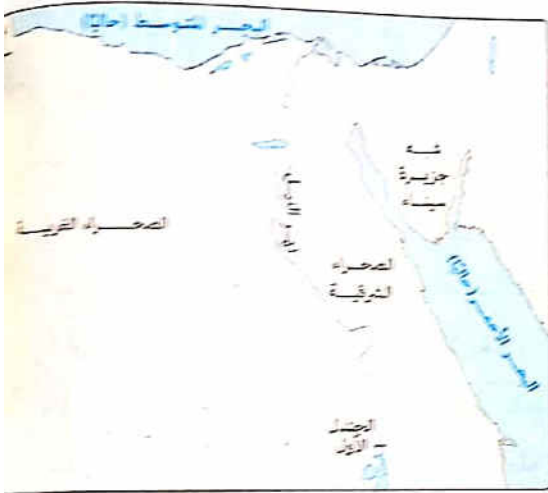 البحر المتوسط (حاليًا)
شبه
جزيرة
سيناء
نهر النيل
الصحراء الغربية
الصحراء
الشرقية
البحر الأحمر (حاليًا)
الجندل
الأول